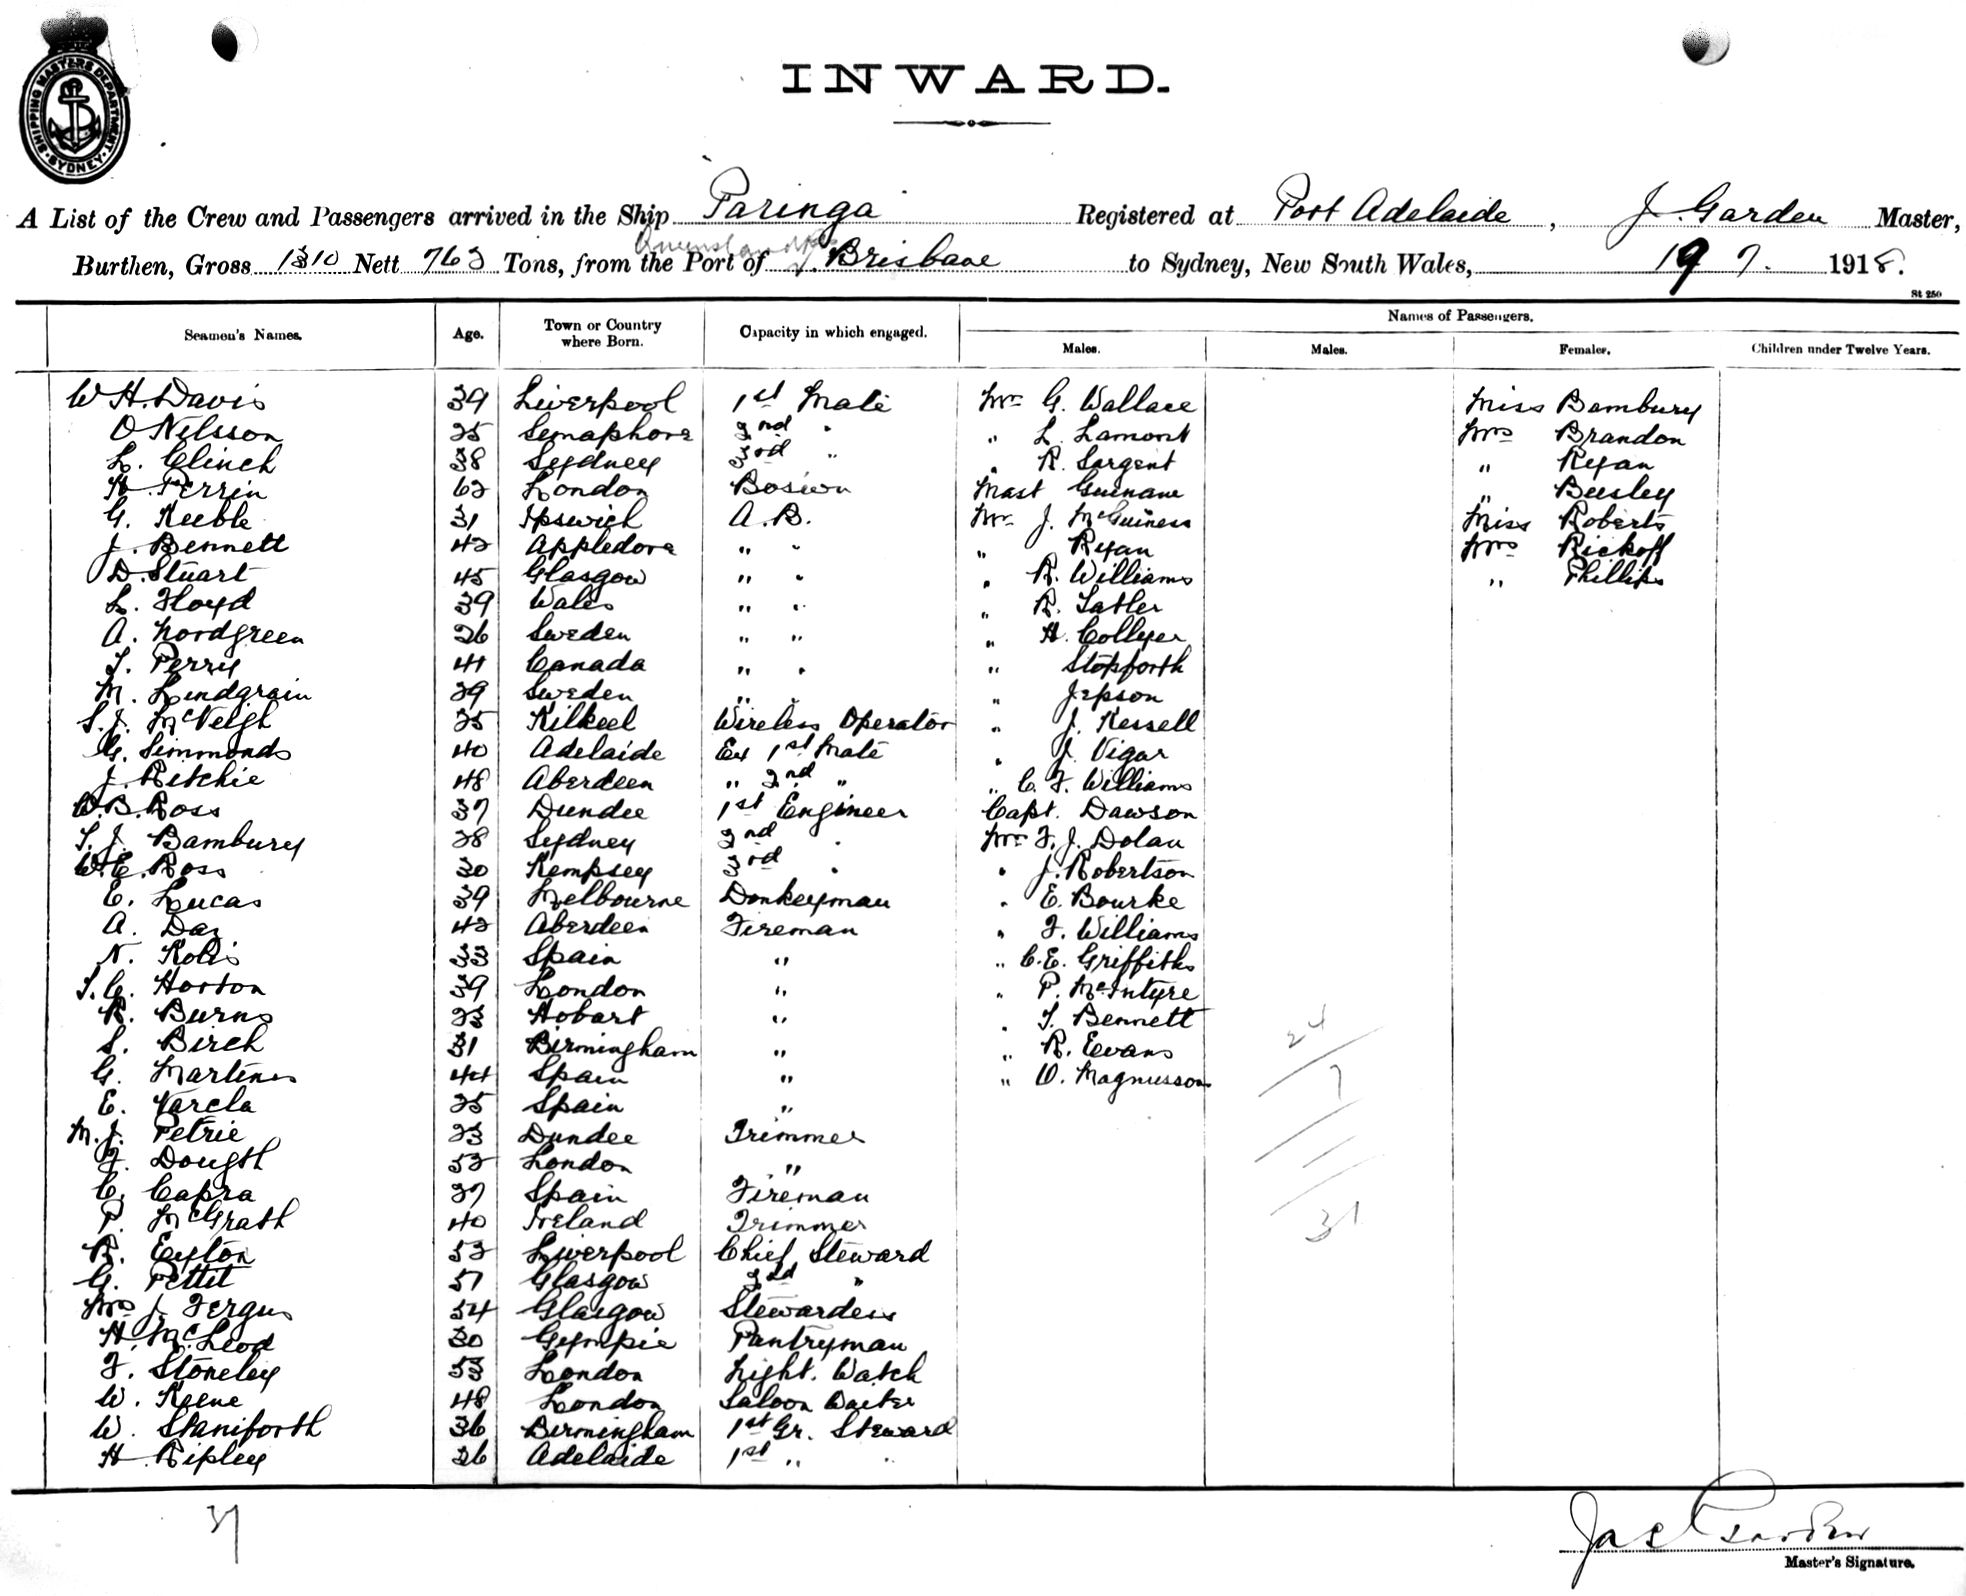 SHIPPING MASTERS DEPARTMENT. SYDNEY
INWARD.
A List of the Crew and Passengers arrived in the Ship Paringa Registered at Port Adelaide, J. Garden Master,
Queensland Pts
Burthen, Gross 1310 Nett 763 Tons, from the Port of Brisbane to Sydney, New South Wales, 19 7. 1918.
St 250
Seamen's Names. Age. Town or Country where Born. Capacity in which engaged. Names of Passengers.
Males. Males. Females. Children under Twelve Years.
W H. Davis 39 Liverpool 1st Mate Mr G. Wallace Miss Bambury
O Nelsson 25 Semaphore 2nd " " L. Lamont Mrs Brandon
L. Clinch 38 Sydney 3rd " " R. Sargent " Ryan
H. Perrin 62 London Bosun Mast Guinane " Beesley
G. Keeble 31 Ipswich A.B. Mr J. McGuiness Miss Roberts
J. Bennett 42 Appledore " " " Ryan Mrs Rickoff
D. Stuart 45 Glasgow " " " R. Williams " Phillips
L. Floyd 39 Wales " " " R. Satler
A. Nordgreen 26 Sweden " " " H. Collyer
T. Perry 41 Canada " " " Stopforth
M. Lindgrain 29 Sweden " " " Jepson
S. J. McVeigh 25 Kilkeel Wireless Operator " J. Kessell
G. Simmonds 40 Adelaide Ex 1st Mate " J. Vigar
J. Ritchie 48 Aberdeen " 2nd " " C. F. Williams
W. B. Ross 37 Dundee 1st Engineer Capt. Dawson
T. J. Bambury 28 Sydney 2nd " Mr F. J. Dolan
W. C. Ross 30 Kempsey 3rd " " J. Robertson
E. Lucas 39 Melbourne Donkeyman " E. Bourke
A. Day 42 Aberdeen Fireman " F. Williams
N. Kobis 33 Spain " " C. E. Griffiths
T. C. Horton 39 London " " P. McIntyre
R. Burns 23 Hobart " " T. Bennett
S. Birch 31 Birmingham " " R. Evans
G. Martines 44 Spain " " O. Magnusson
E. Varela 25 Spain "
M. J. Petrie 23 Dundee Trimmer
F. Dougth 52 London "
C. Capra 27 Spain Fireman
P. McGrath 40 Ireland Trimmer
R. Eyton 52 Liverpool Chief Steward
G. Pettit 57 Glasgow 2nd "
Mrs J. Fergus 54 Glasgow Stewardess
H. McLeod 30 Gympie Pantryman
F. Stoneley 53 London Night. Watch
W. Keene 48 London Saloon Waiter
W. Staniforth 36 Birmingham 1st Gr. Steward
H. Ripley 26 Adelaide 1st " "
24
7
31
37
Jas Garden
Master's Signature.